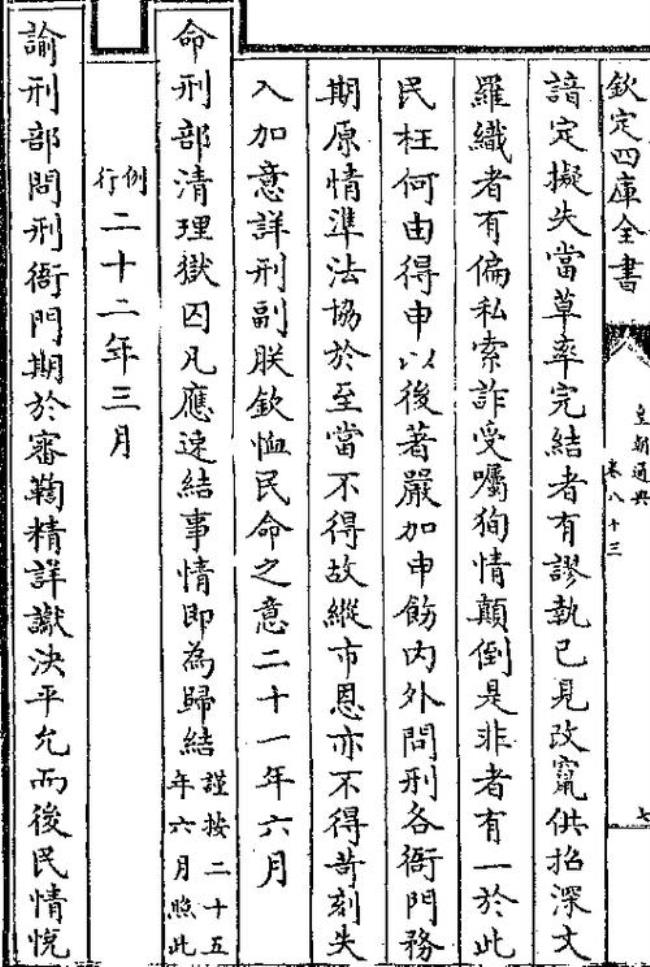 欽定四庫全書
皇朝通典
卷八十三
七
諳定擬失當草率完結者有謬執己見改竄供招深文
羅織者有偏私索詐受囑狥情顛倒是非者有一於此
民枉何由得申以後著嚴加申飭內外問刑各衙門務
期原情準法協於至當不得故縱市恩亦不得苛刻失
入加意詳刑副朕欽恤民命之意二十一年六月
命刑部清理獄囚凡應速結事情即為歸結謹按二十五
年六月照此
例
行二十二年三月
諭刑部問刑衙門期於審鞫精詳讞決平允而後民情悅